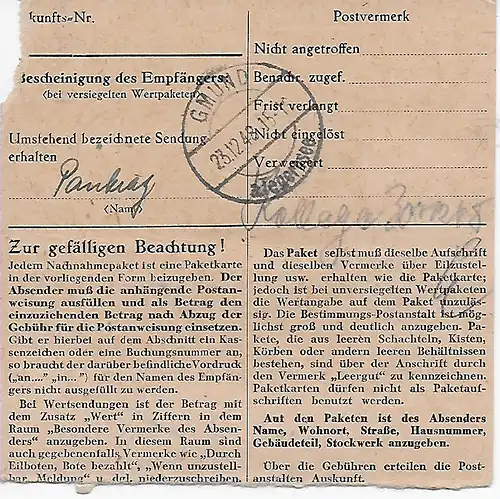 kunfts-Nr.
Bescheinigung des Empfängers
(bei versiegelten Wertpaketen)
Umstehend bezeichnete Sendung
erhalten
Pankratz
(Name)
Postvermerk
Nicht angetroffen
Benachr. zugef.
Frist verlangt
Nicht eingelöst
Verweigert
GMUND
23.12.48.16-1
a.Tegernsee
Zur gefälligen Beachtung!
Jedem Nachnahmepaket ist eine Paketkarte
in der vorliegenden Form beizugeben. Der
Absender muß die anhängende Postan-
weisung ausfüllen und als Betrag den
einzuziehenden Betrag nach Abzug der
Gebühr für die Postanweisung einsetzen.
Gibt er hierbei auf dem Abschnitt ein Kas-
senzeichen oder eine Buchungsnummer an,
so braucht der darüber befindliche Vordruck
(„an...." „in...") für den Namen des Empfän-
gers nicht ausgefüllt zu werden.
Bei Wertsendungen ist der Betrag mit
dem Zusatz „Wert" in Ziffern in dem
Raum „Besondere Vermerke des Absen-
ders" anzugeben. In diesem Raum sind
auch gegebenenfalls Vermerke wie „Durch
Eilboten, Bote bezahlt", „Wenn unzustell-
bar, Meldung" u. dgl. niederzuschreiben.
Das Paket selbst muß dieselbe Aufschrift
und dieselben Vermerke über Eilzustel-
lung usw. erhalten wie die Paketkarte;
jedoch ist bei unversiegelten Wertpaketen
die Wertangabe auf dem Paket unzuläs-
sig. Die Bestimmungs-Postanstalt ist mög-
lichst groß und deutlich anzugeben. Pa-
kete, die aus leeren Schachteln, Kisten,
Körben oder anderen leeren Behältnissen
bestehen, sind über der Anschrift durch
den Vermerk „Leergut" zu kennzeichnen.
Paketkarten dürfen nicht als Paketauf-
schriften benutzt werden.
Auf den Paketen ist des Absenders
Name, Wohnort, Straße, Hausnummer,
Gebäudeteil, Stockwerk anzugeben.
Über die Gebühren erteilen die Post-
anstalten Auskunft.